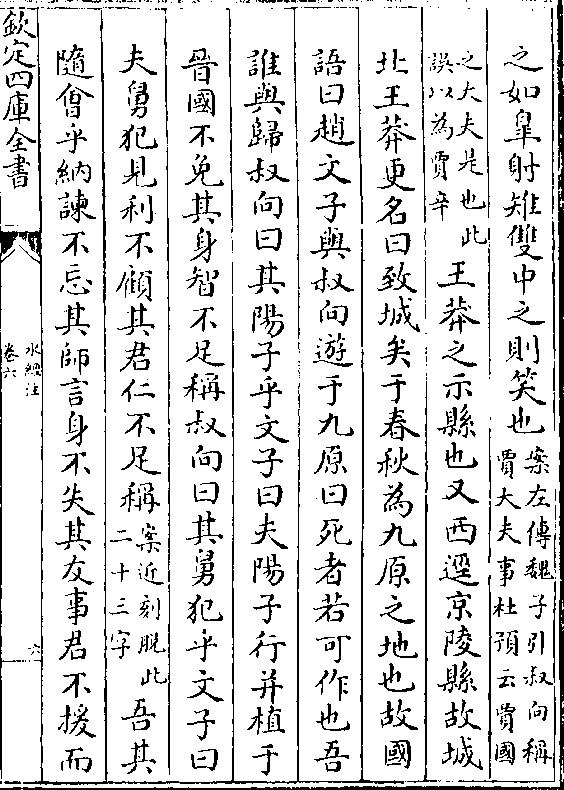 之如臯射雉雙中之則笑也案左傳魏子引叔向稱
賈大夫事杜預云賈國
之大夫是也此
誤以為賈辛
王莽之示縣也又西逕京陵縣故城
北王莽更名曰致城矣于春秋為九原之地也故國
語曰趙文子與叔向遊于九原曰死者若可作也吾
誰與歸叔向曰其陽子乎文子曰夫陽子行并植于
晉國不免其身智不足稱叔向曰其舅犯乎文子曰
夫舅犯見利不顧其君仁不足稱案近刻脫此
二十三字
吾其
隨會乎納諫不忘其師言身不失其友事君不援而
欽定四庫全書
水經注
卷六
六